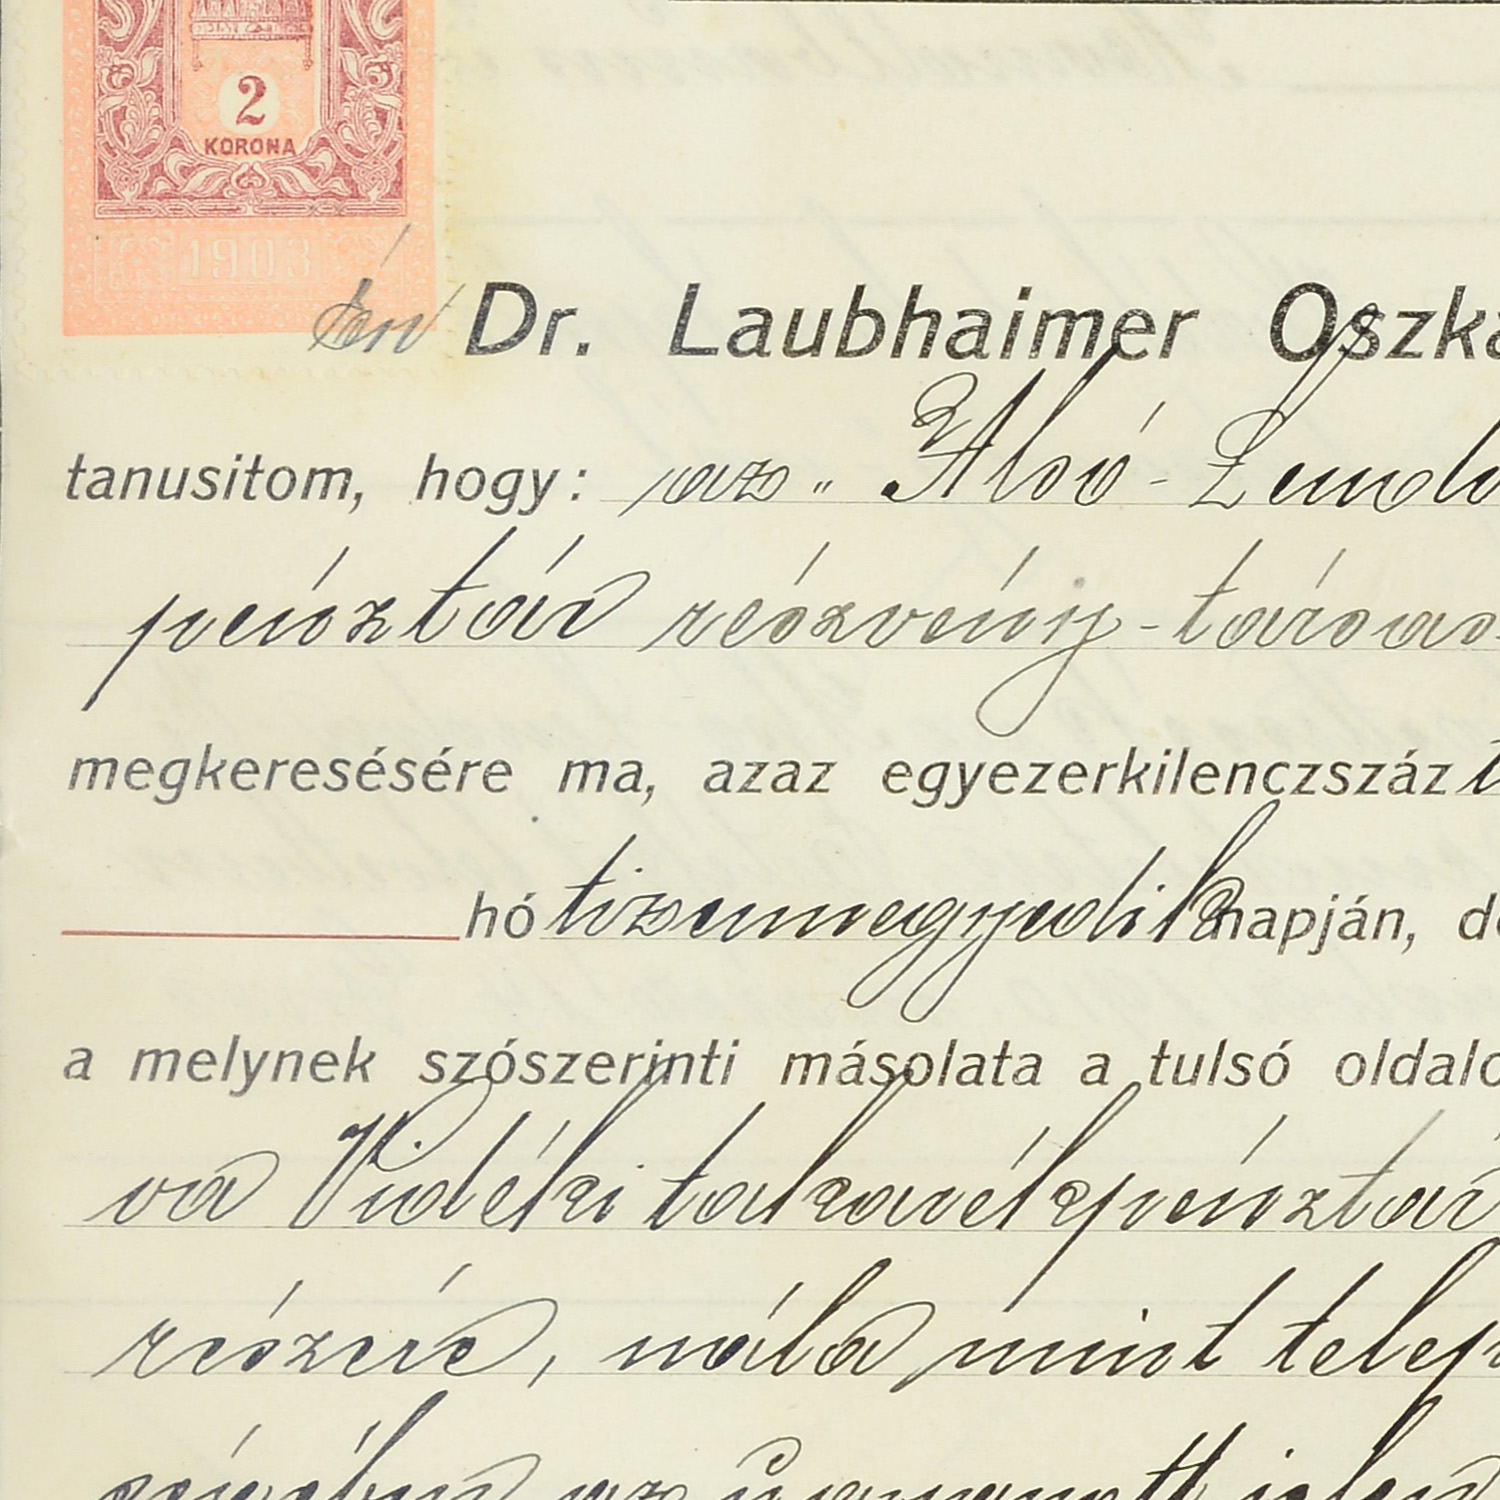 2
KORONA
1903
Én Dr. Laubhaimer Oszká
tanusitom, hogy: az „Alsó-Lend
pénztár részvény-társas
megkeresésére ma, azaz egyezerkilenczszáz t
hó tizennegyedik napján, de
a melynek szószerinti másolata a tulsó oldalo
va Vidéki takarékpénztár
részére, nála mint telep
az ügynevezett jelen